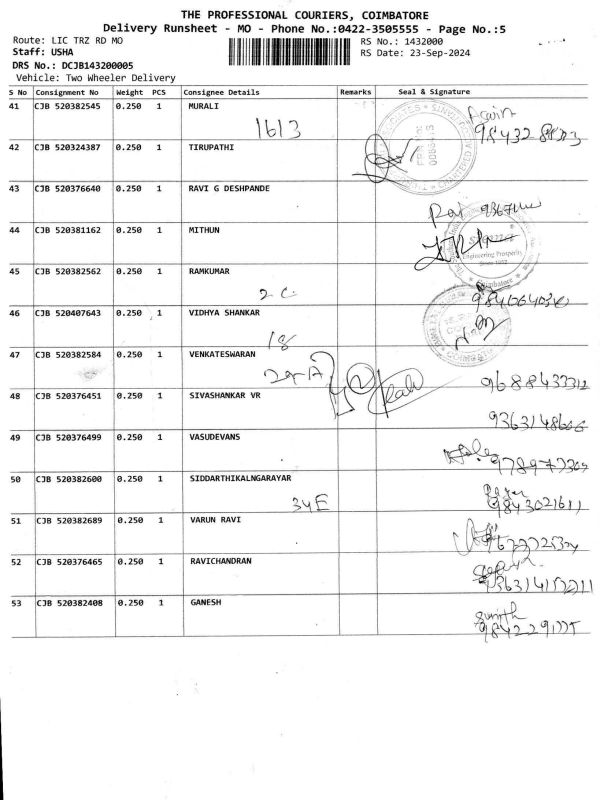 THE PROFESSIONAL COURIERS, COIMBATORE
Delivery Runsheet - MO - Phone No.:0422-3505555 - Page No.:5
Route: LIC TRZ RD MO RS No.: 1432000
Staff: USHA RS Date: 23-Sep-2024
DRS No.: DCJB143200005
Vehicle: Two Wheeler Delivery
S No Consignment No Weight PCS Consignee Details Remarks Seal & Signature
41 CJB 520382545 0.250 1 MURALI
1613
42 CJB 520324387 0.250 1 TIRUPATHI
43 CJB 520376640 0.250 1 RAVI G DESHPANDE
44 CJB 520381162 0.250 1 MITHUN
Engineering Prosperity
Coimbatore
45 CJB 520382562 0.250 1 RAMKUMAR
2 C
46 CJB 520407643 0.250 1 VIDHYA SHANKAR
18
47 CJB 520382584 0.250 1 VENKATESWARAN
9688433312
48 CJB 520376451 0.250 1 SIVASHANKAR VR
49 CJB 520376499 0.250 1 VASUDEVANS
50 CJB 520382600 0.250 1 SIDDARTHIKALNGARAYAR
34E
9843021611
51 CJB 520382689 0.250 1 VARUN RAVI
52 CJB 520376465 0.250 1 RAVICHANDRAN
53 CJB 520382408 0.250 1 GANESH